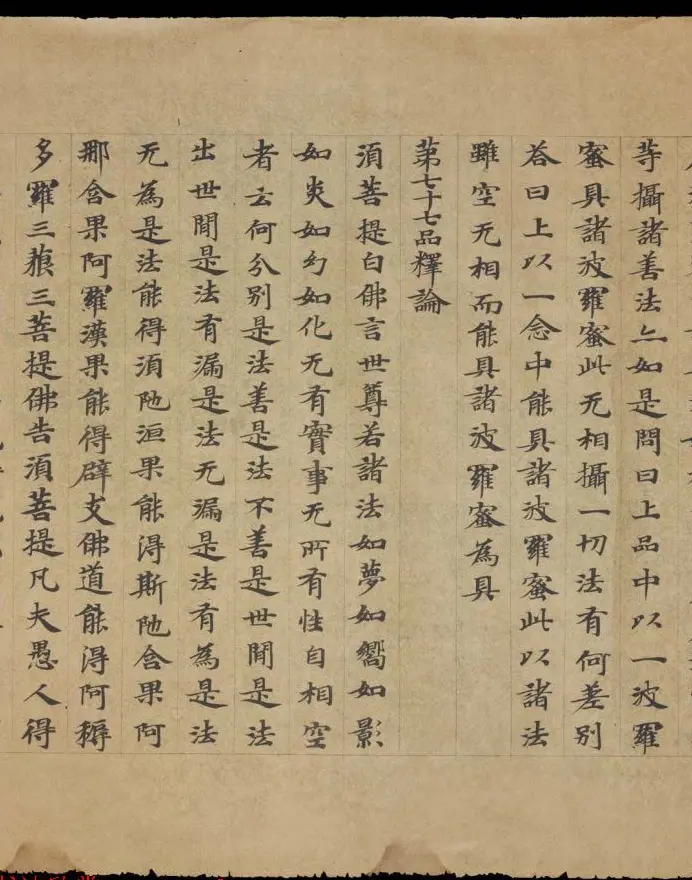 等攝諸善法亦如是問曰上品中以一波羅
蜜具諸波羅蜜此无相攝一切法有何差別
荅曰上以一念中能具諸波羅蜜此以諸法
雖空无相而能具諸波羅蜜為具
苐七十七品釋論
湏菩提白佛言世尊若諸法如夢如嚮如影
如炎如幻如化无有實事无所有性自相空
者云何分別是法善是法不善是世閒是法
出世閒是法有漏是法无漏是法有為是法
无為是法能得湏陁洹果能得斯陁含果阿
那含果阿羅漢果能得辟支佛道能得阿耨
多羅三藐三菩提佛告湏菩提凡夫愚人得